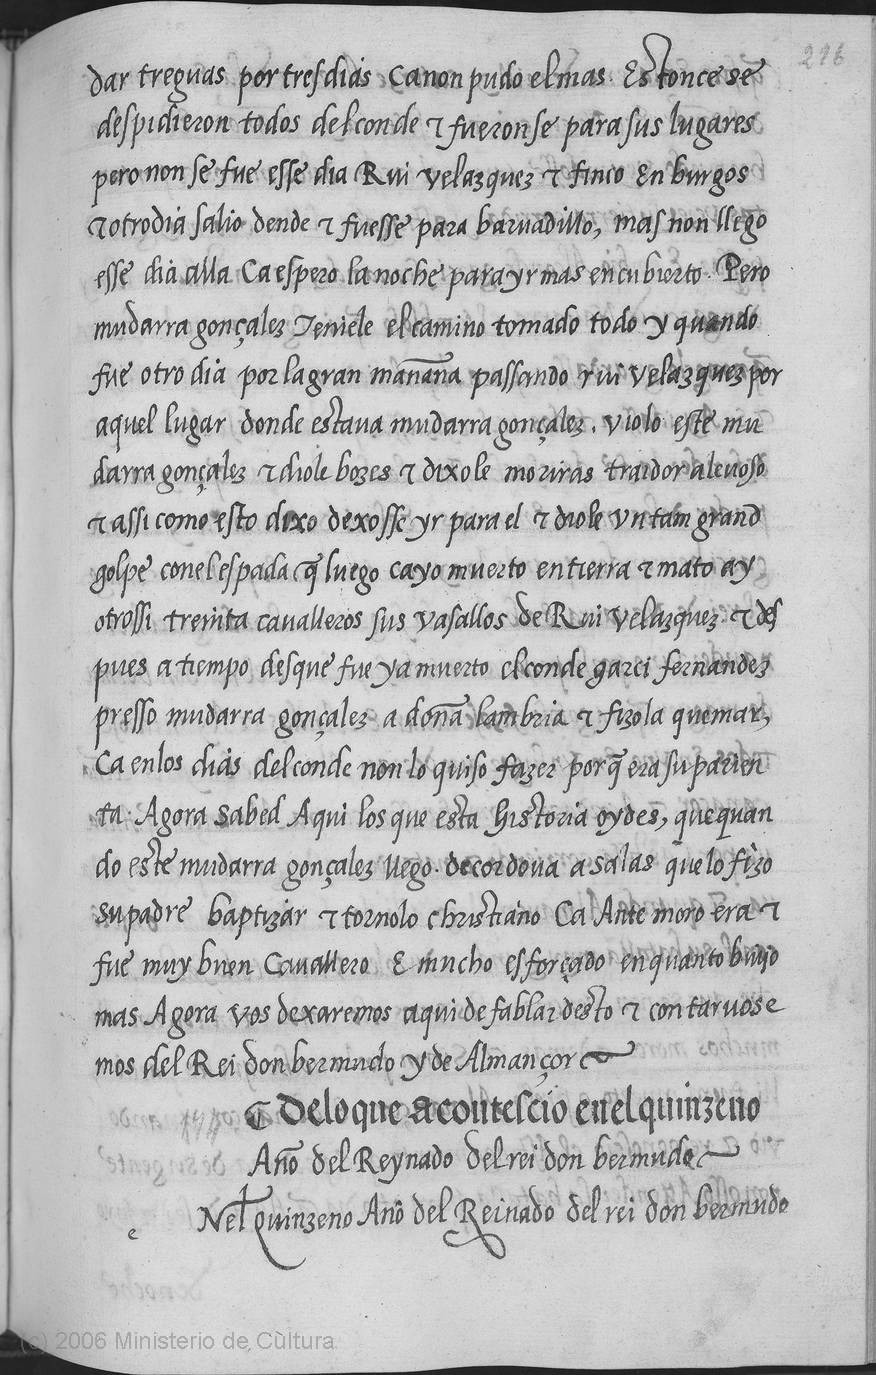 296
dar treguas por tres dias Ca non pudo el mas. Estonce se
despidieron todos del conde τ fueronse para sus lugares
pero non se fue esse dia Rui velazquez τ finco En burgos
τ otro dia salio dende τ fuesse para baruadillo, mas non llego
esse dia alla Ca espero la noche para yr mas encubierto. Pero
mudarra gonçalez Teniele el camino tomado todo y quando
fue otro dia por la gran mañana passando rui velazquez por
aquel lugar donde estaua mudarra gonçalez. violo este mu
darra gonçalez τ diole bozes τ dixole moriras traidor aleuoso
τ assi como esto dixo dexosse yr para el τ diole vn tam grand
golpe con el espada q̃ luego cayo muerto en tierra τ mato ay
otrossi treinta caualleros sus vasallos de Rui velazquez. τ des
pues a tiempo desque fue ya muerto el conde garci fernandez
presso mudarra gonçalez a doña lambria τ fizola quemar,
Ca en los dias del conde non lo quiso fazer porq̃ era su parien
ta. Agora sabed Aqui los que esta historia oydes, que quan
do este mudarra gonçalez llego. de cordoua a salas que lo fizo
su padre baptizar τ tornolo christiano Ca Ante moro era τ
fue muy buen Cauallero E mucho esforçado en quanto buijo
mas Agora vos dexaremos aqui de fablar desto τ contaruose
mos del Rei don bermudo y de Almançor
¶ De lo que acontescio en el quinzeno
Año del Reynado del rei don bermudo
e Nel quinzeno Año del Reinado del rei don bermudo
(c) 2006 Ministerio de Cultura